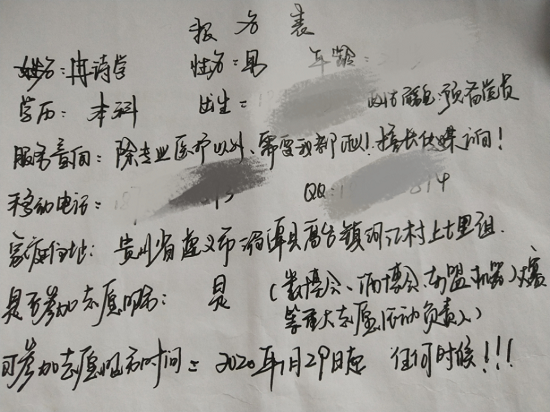 报名表
姓名:冉诗学 性别:男 年龄:
学历:本科 出生: 政治面貌:预备党员
服务意向:除专业医疗以外、需要我都可以!擅长传媒、新闻!
移动电话: QQ: 814
家庭住址:贵州省遵义市湄潭县高台镇河江村上十里组.
是否参加志愿服务: 是 (数博会、酒博会、东盟机器人大赛
等重大志愿活动负责人)
可参加志愿服务时间:2020年1月29日起 任何时候!!!